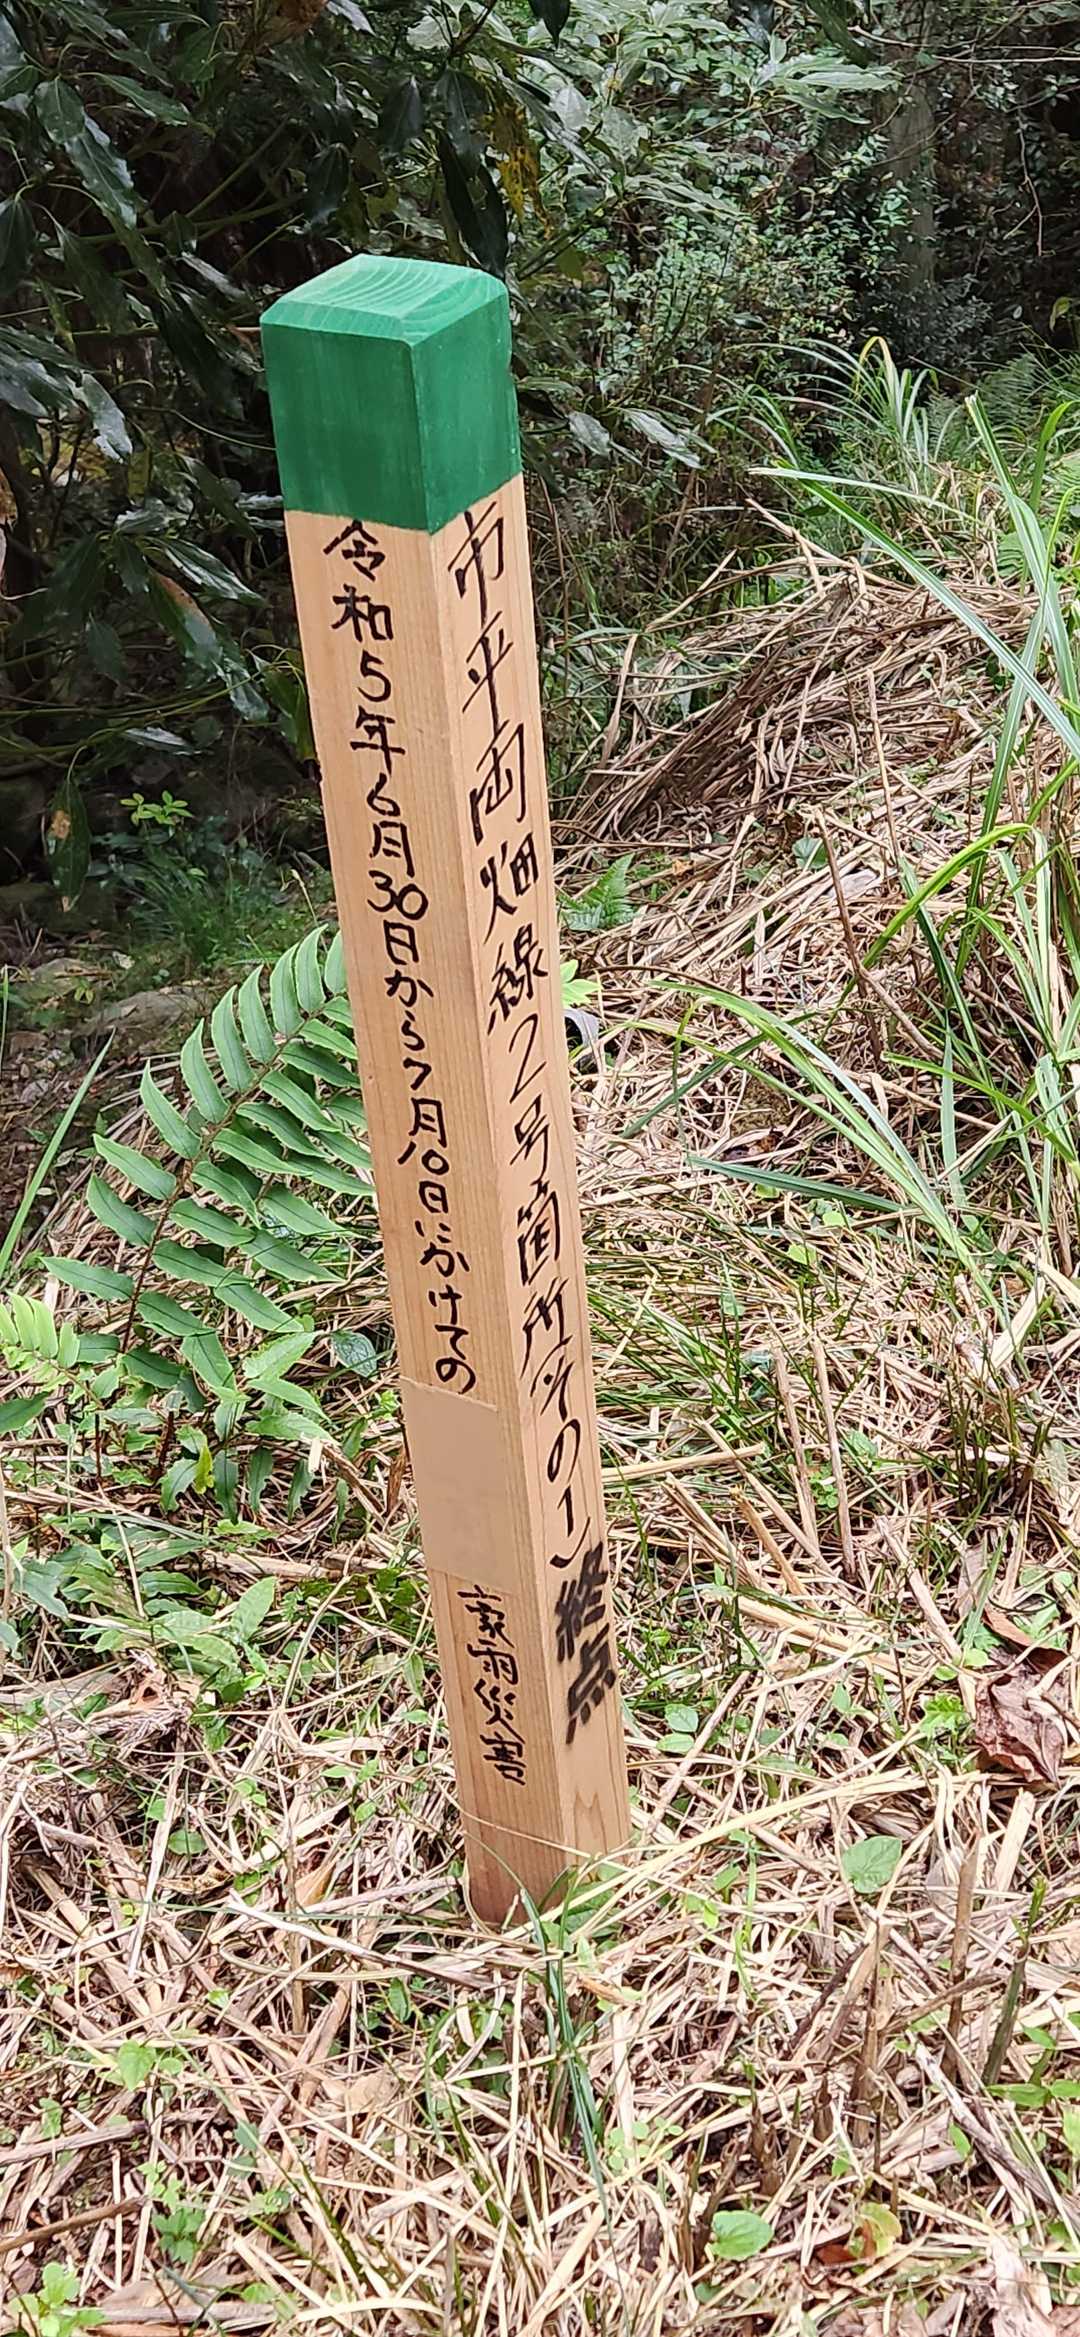 令和5年6月30日から7月10日にかけての
豪雨災害
市平両畑線2号箇所その1
終点